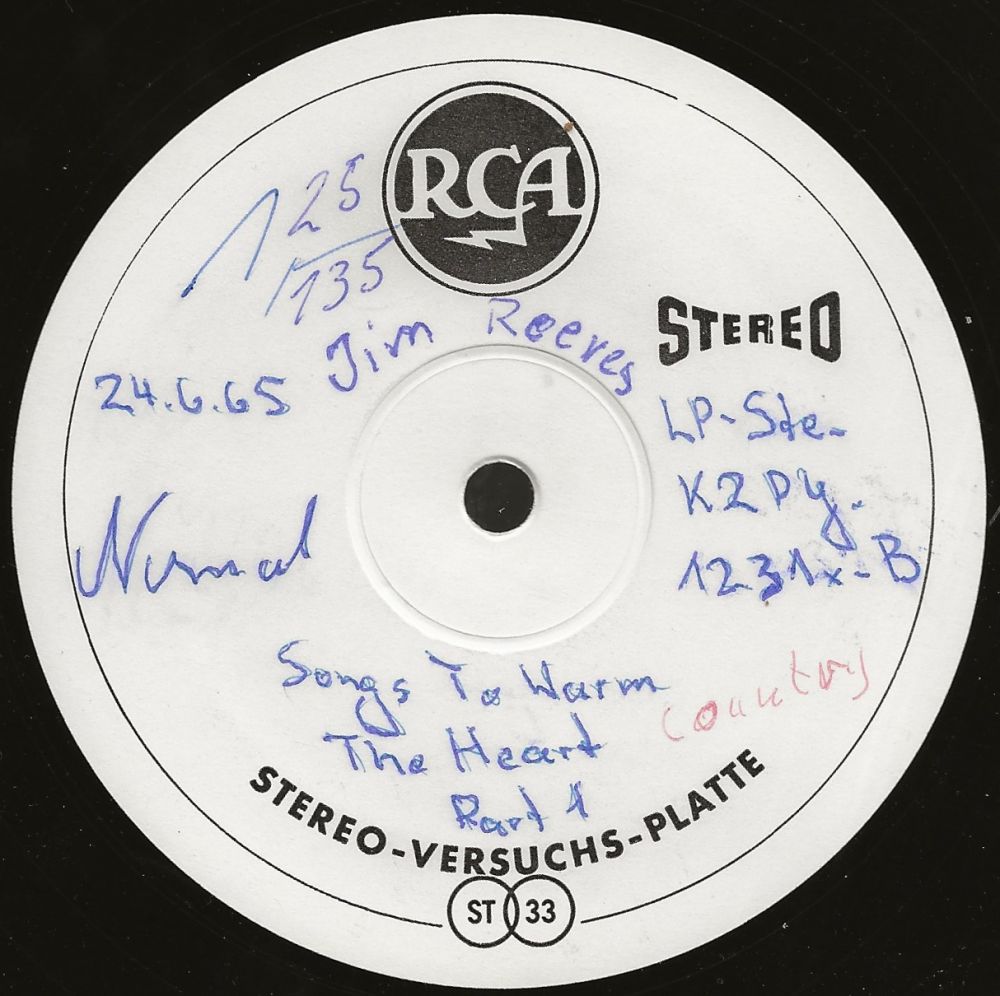 RCA
125
135
Jim Reeves
STEREO
24.6.65
LP-Ste.
K2PY.
1231x-B
Normal
Songs To Warm
The Heart
Part 1
Country
STEREO-VERSUCHS-PLATTE
ST 33